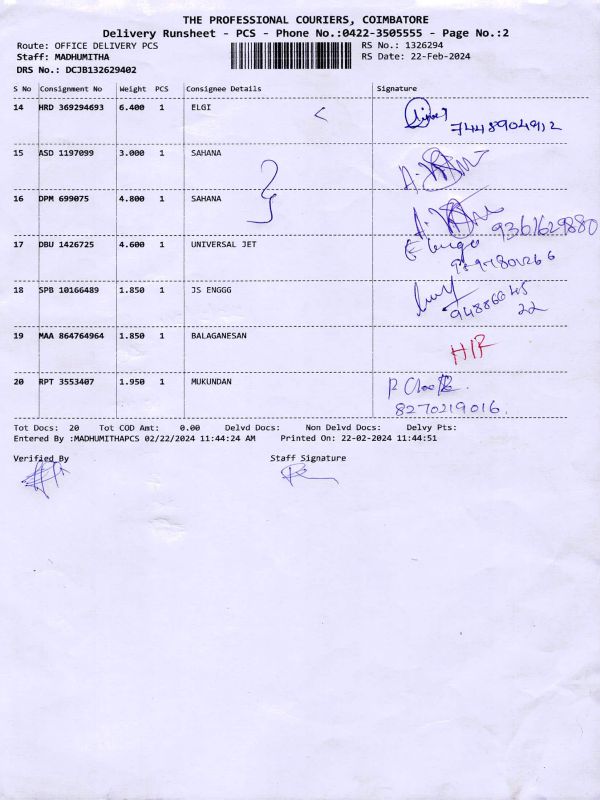 THE PROFESSIONAL COURIERS, COIMBATORE
Delivery Runsheet - PCS - Phone No.:0422-3505555 - Page No.:2
Route: OFFICE DELIVERY PCS RS No.: 1326294
Staff: MADHUMITHA RS Date: 22-Feb-2024
DRS No.: DCJB132629402
S No Consignment No Weight PCS Consignee Details Signature
14 HRD 369294693 6.400 1 ELGI
7448904912
15 ASD 1197099 3.000 1 SAHANA
16 DPM 699075 4.800 1 SAHANA
9361629880
17 DBU 1426725 4.600 1 UNIVERSAL JET
18 SPB 10166489 1.850 1 JS ENGGG
9488664522
19 MAA 864764964 1.850 1 BALAGANESAN
20 RPT 3553407 1.950 1 MUKUNDAN
8270219016.
Tot Docs: 20 Tot COD Amt: 0.00 Delvd Docs: Non Delvd Docs: Delvy Pts:
Entered By :MADHUMITHAPCS 02/22/2024 11:44:24 AM Printed On: 22-02-2024 11:44:51
Verified By Staff Signature